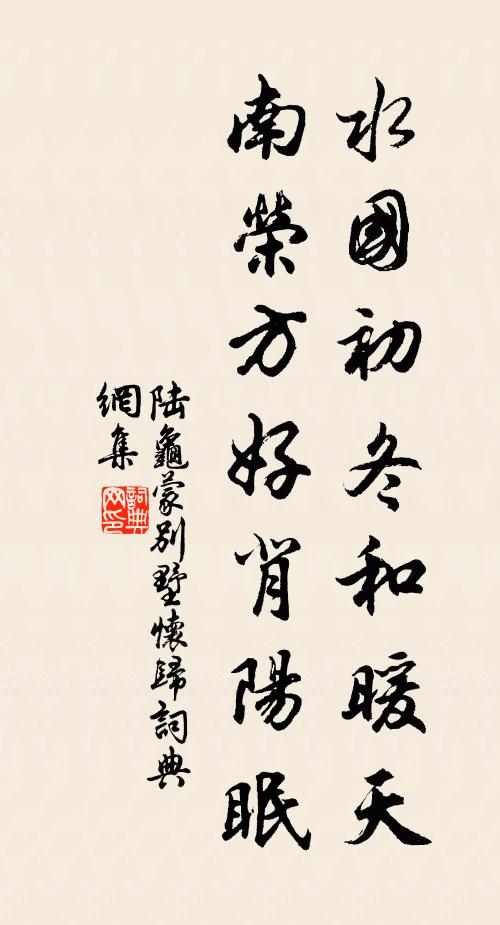 水國初冬和暖天
南榮方好背陽眠
陸龜蒙別墅懷歸詞典
網集
詞典
网印